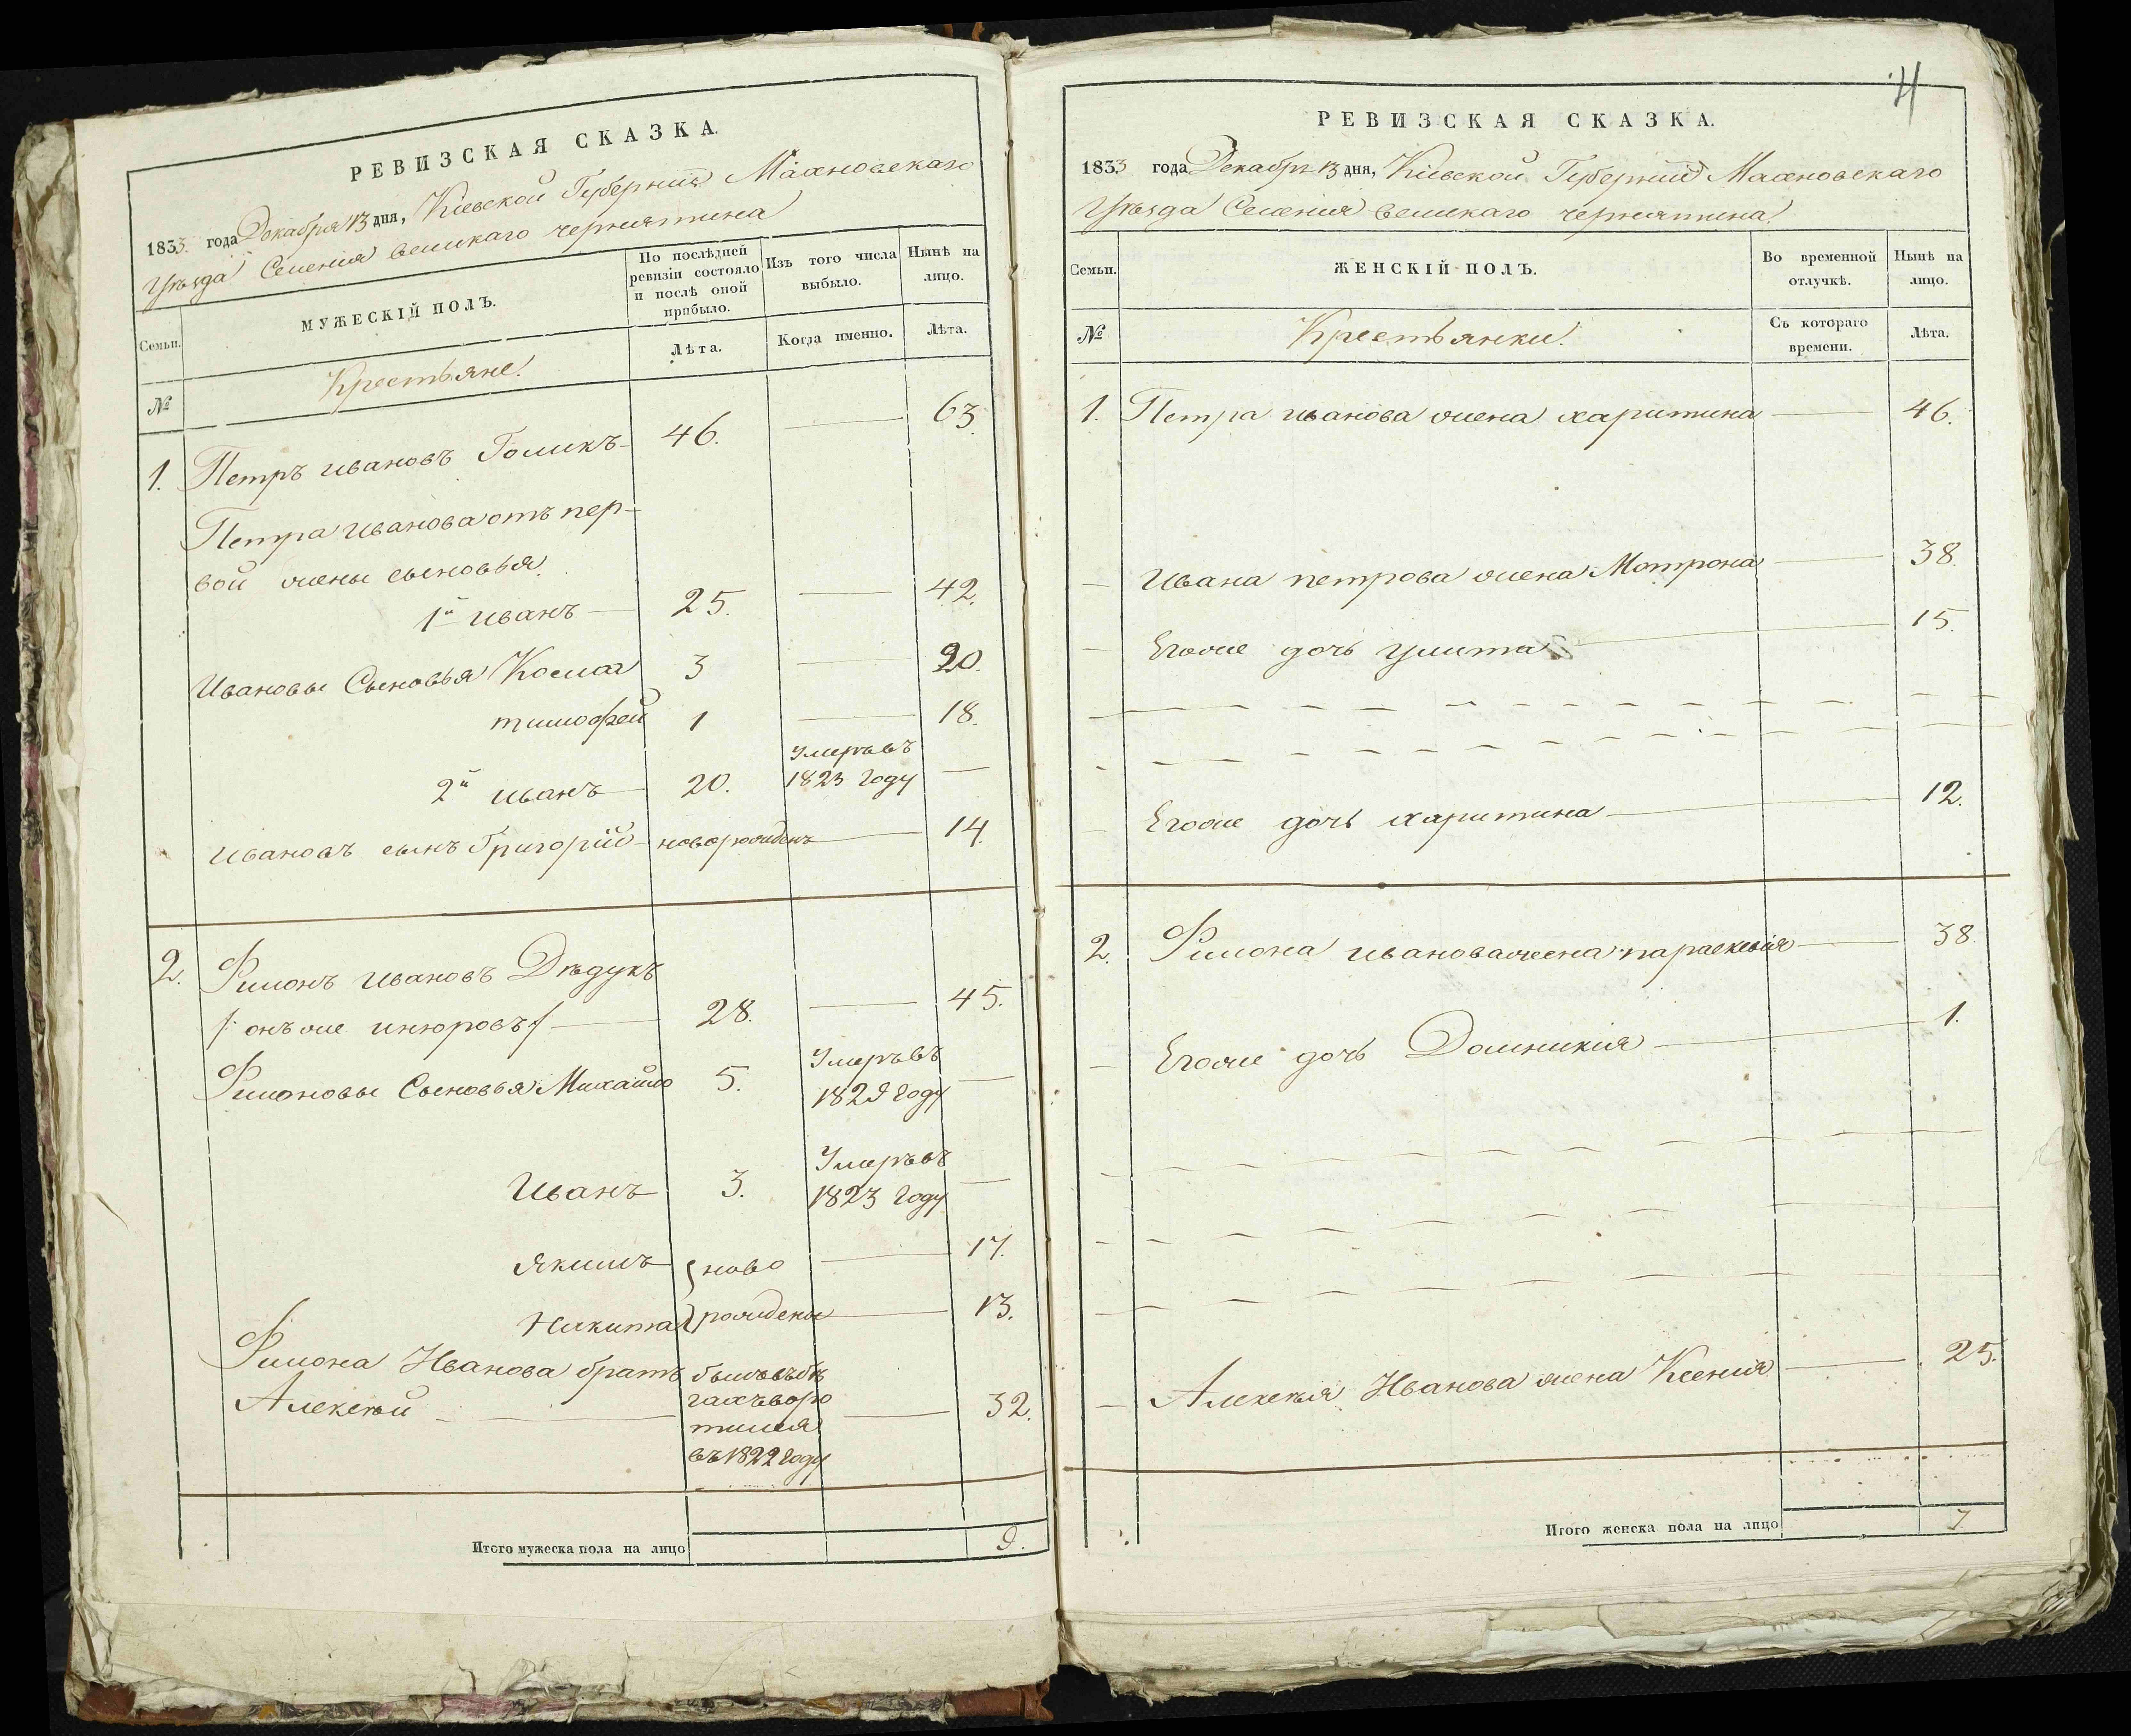 РЕВИЗСКАЯ СКАЗКА.
1833. года Декабря 13 дня, Кіевской Губерніи Махновскаго
Уѣзда Селенія великаго чернятина
Семьи.
МУЖЕСКІЙ ПОЛЪ.
По послѣдней ревизіи состояло и послѣ оной прибыло.
Изъ того числа выбыло.
Нынѣ на лицо.
№
Крестьяне.
Лѣта.
Когда именно.
Лѣта.
1. Петръ ивановъ Голикъ 46. — 63.
Петра иванова отъ пер-
вой жены сыновья
1й иванъ — 25. — 42.
Ивановы Сыновья Косма 3 — 20.
тимофей 1 — 18.
2й иванъ — 20. умеръ въ 1823 году —
ивановъ сынъ Григорій — новорожденъ — 14.
2. Филонъ ивановъ Дѣдукъ
/: онъ же инюровъ / — 28. — 45.
Филоновы Сыновья Михайло 5. Умеръ въ 1829 году —
Иванъ 3. Умеръ въ 1823 году —
якимъ ново — 17.
Никита рождены — 13.
Филона Иванова братъ
Алексѣй — былъ въ бѣгахъ воротился въ 1822 году — 32.
Итого мужеска пола на лицо 9.
4
РЕВИЗСКАЯ СКАЗКА.
1833 года Декабря 13 дня, Кіевской Губерніи Махновскаго
Уѣзда Селенія великаго чернятина
Семьи.
ЖЕНСКІЙ ПОЛЪ.
Во временной отлучкѣ.
Нынѣ на лицо.
№
Крестьянки.
Съ котораго времени.
Лѣта.
1. Петра иванова жена харитина — 46.
— Ивана петрова жена Мотрона — 38.
— Егоже дочь улита — 15.
— Егоже дочь харитина — 12.
2. Филона иванова жена параскевія — 38.
— Егоже дочь Домникія — 1.
— Алексѣя Иванова жена Ксенія — 25.
Итого женска пола на лицо 7.